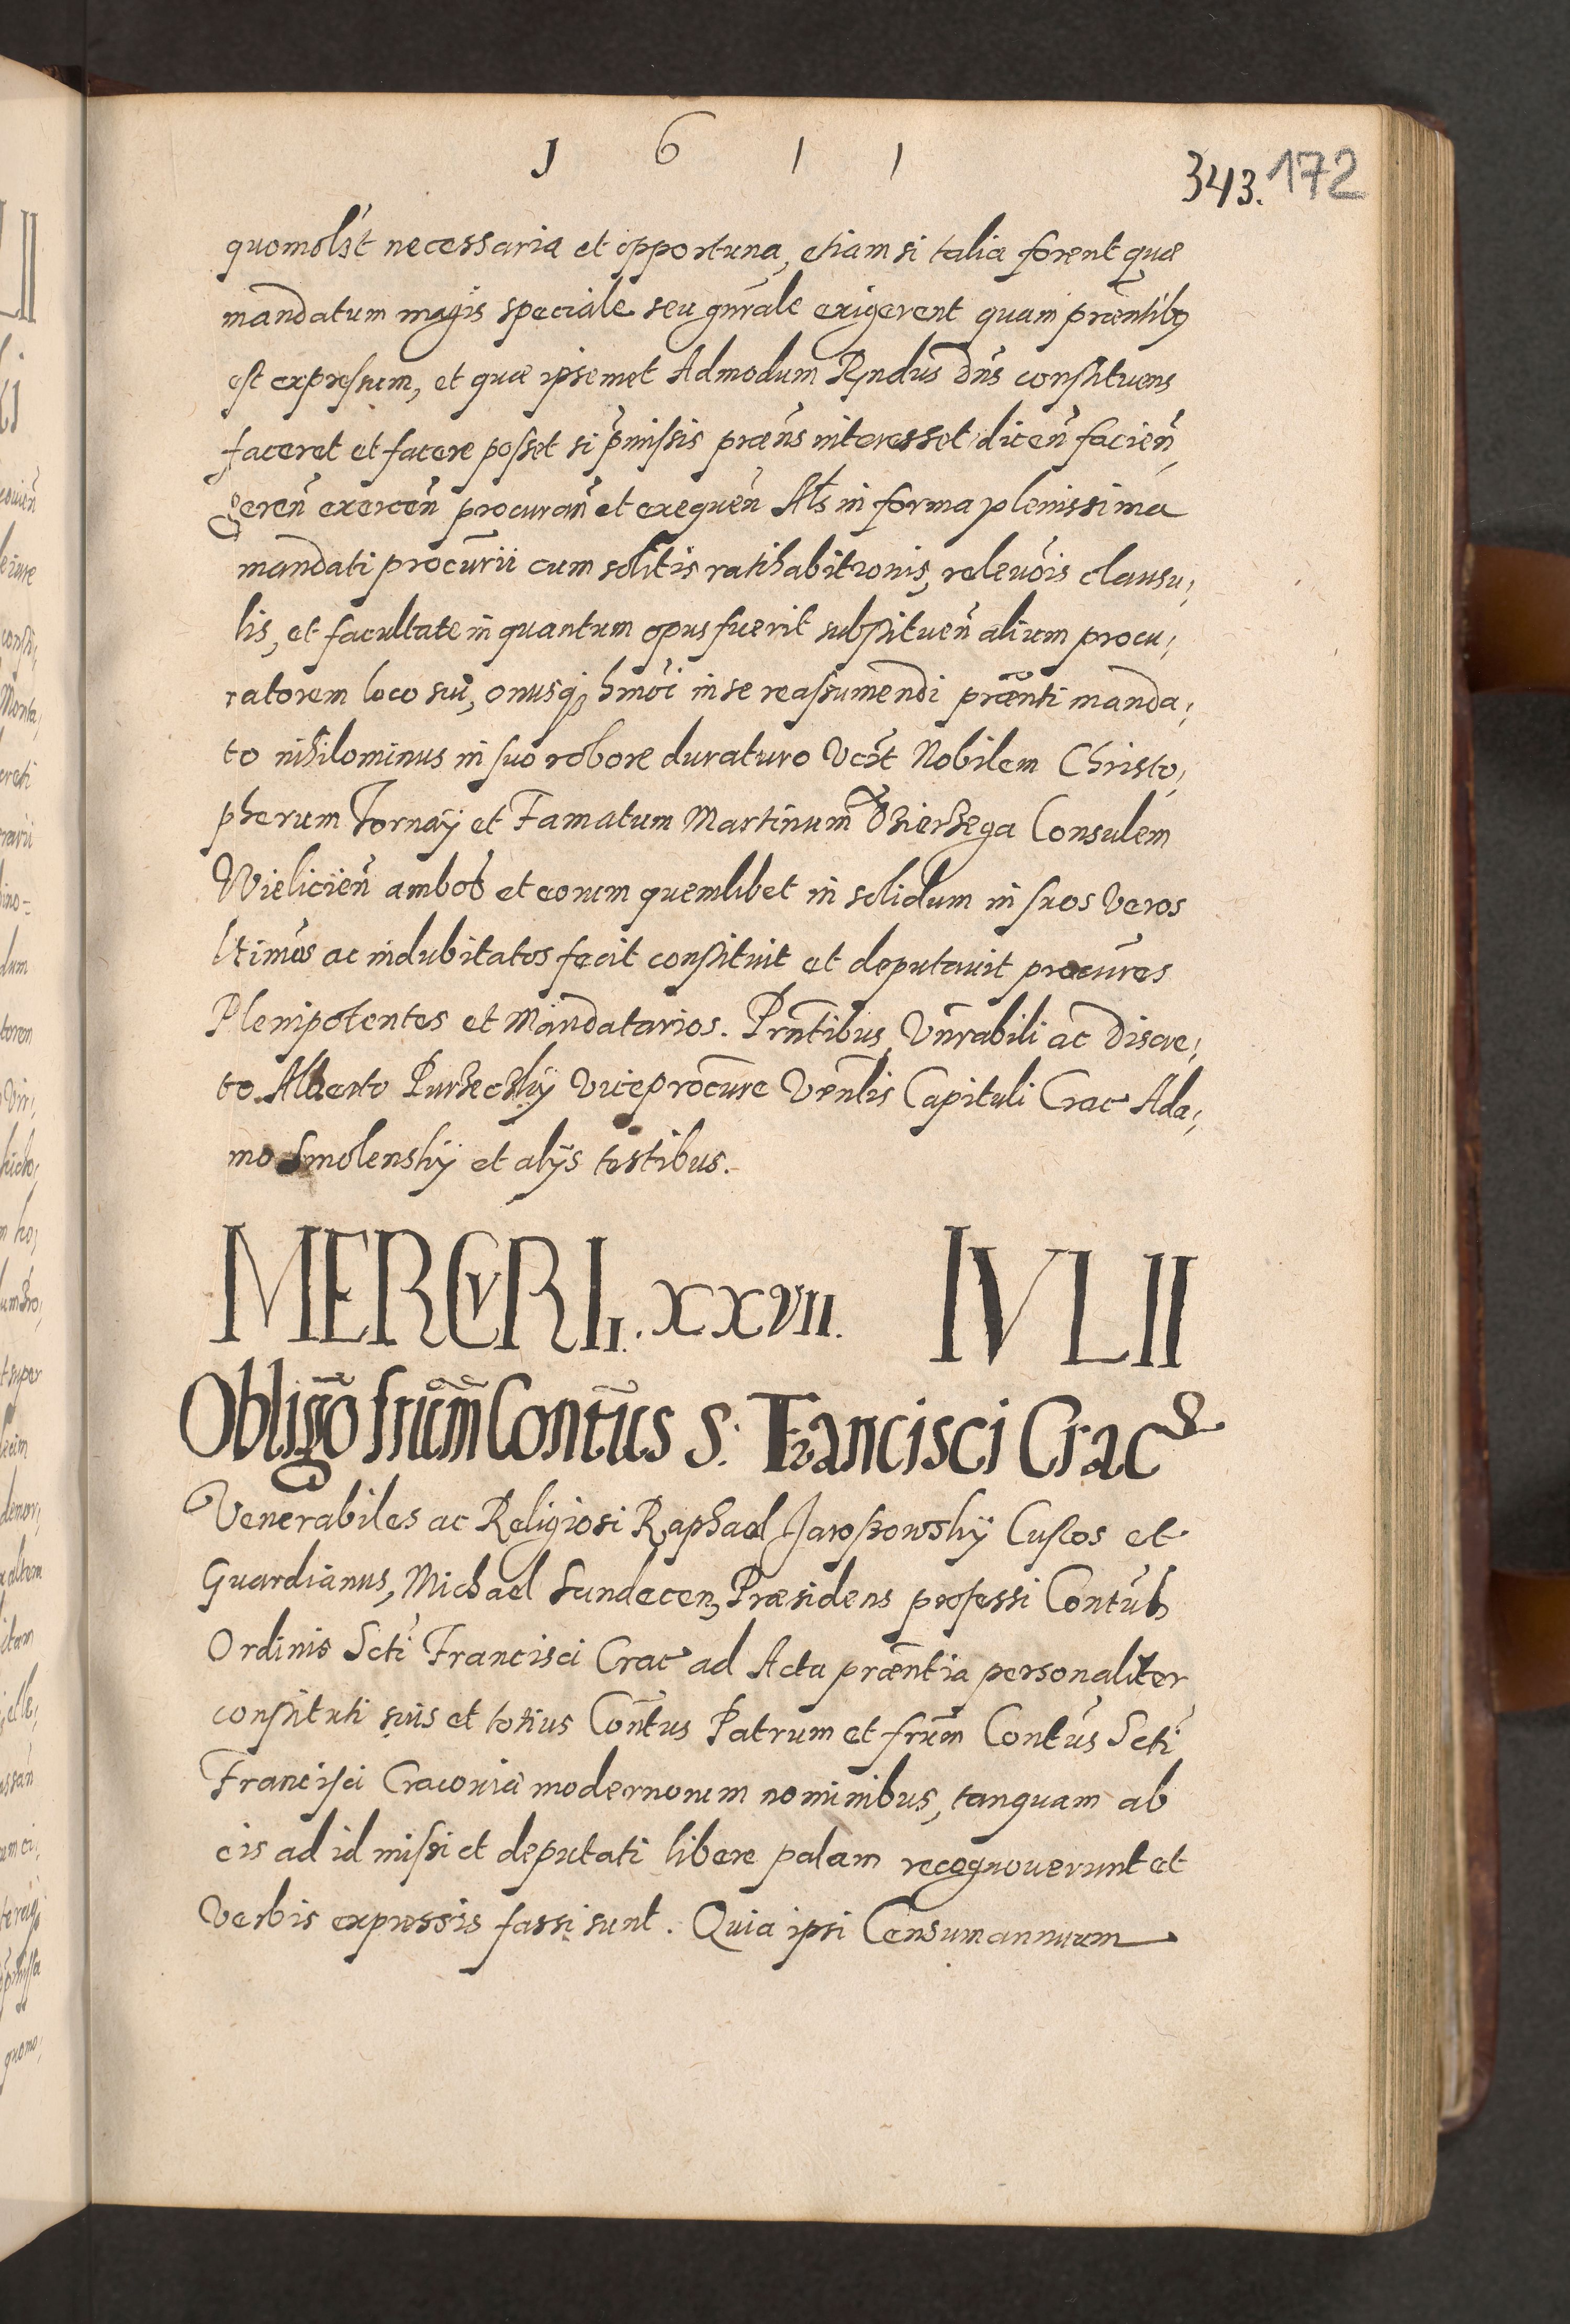 1 6 1 1
343. 172
quomolśt necessaria et opportuna, etiam si talia forent quæ
mandatum magis speciale seu gnrale exigerent quam præntibq
est expressum, et quæ ipsemet Admodum Rndus Dns constituens
faceret et facere posset si pmissis præns interesset dicen facien,
geren exercen procuran et exequen Als in forma plenissima
mandati procurii cum solitis ratihabitionis, relevois clausu,
lis, et facultate in quantum opus fuerit substituen alium procu,
ratorem loco sui, onusq hmoi in se reassumendi prænti manda,
to nihilominus in suo robore duraturo Vczt Nobilem Christo,
pherum Tornaÿ et Famatum Martinum Consulem
Wielicien ambos et eorum quemlibet in solidum in suos veros
ltimos ac indubitatos fecit constituit et deputavit procures
Plenipotentes et Mandatarios. Prntibus Vnrabili ac Discre,
to Alberto Viceprocure Venlis Capituli Crac Ada,
mo Smolenskÿ et alÿs testibus.
MERCVRII. XXVII. IVLII
Obligo frum Contus S. Francisci Crac
Venerabiles ac Religiosi Raphael Jaroszowskÿ Custos et
Guardianus, Michael Sandecen, Præsidens professi Contus
Ordinis Scti Francisci Crac ad Acta præntia personaliter
constituti suis et totius Contus Patrum et frum Contus Scti
Francisci Cracoviæ modernorum nominibus, tanquam ab
eis ad id missi et deputati libere palam recognoverunt et
verbis expressis fassi sunt. Quia ipsi Censum annuum